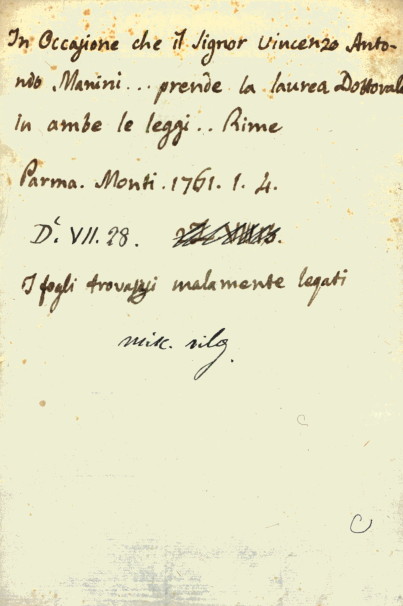 In Occasione che il Signor Vincenzo Anto-
nio Manini... prende la laurea Dottorale
in ambe le leggi.. Rime
Parma. Monti. 1761. 1. 4.
D. VII. 28.
I fogli trovansi malamente legati
misc. rilg.